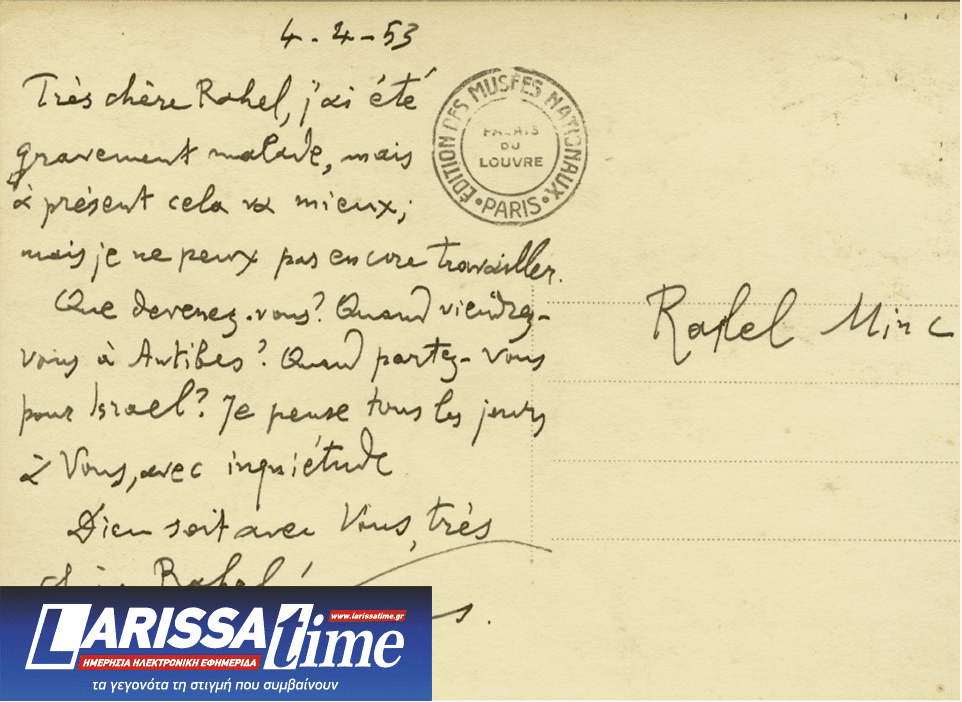 4-4-53
Très chère Rahel, j'ai été
gravement malade, mais
à présent cela va mieux;
mais je ne peux pas encore travailler.
Que devenez-vous? Quand viendrez-
vous à Antibes? Quand partez-vous
pour Israel? Je pense tous les jours
à Vous, avec inquiétude
Dieu soit avec Vous, très
chère Rahel!
EDITION DES MUSÉES NATIONAUX
PALAIS
DU
LOUVRE
• PARIS •
Rahel Minc
LARISSAtime
www.larissatime.gr
ΗΜΕΡΗΣΙΑ ΗΛΕΚΤΡΟΝΙΚΗ ΕΦΗΜΕΡΙΔΑ
τα γεγονότα τη στιγμή που συμβαίνουν